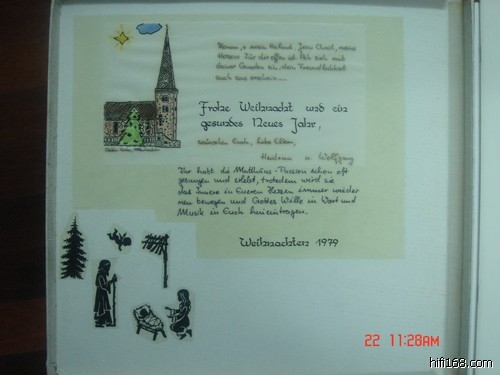 Komm, o mein Heiland, Jesu Christ, meins
Herzens Tür dir offen ist. Ach zieh mit
deiner Gnaden ein, dein Freundlichkeit
auch uns erschein....
Frohe Weihnacht und ein
gesundes Neues Jahr,
wünschen Euch, liebe Eltern,
u. Wolfgang
Ihr habt die Matthäus-Passion schon oft
gesungen und erlebt, trotzdem wird sie
das Innere in Eueren Herzen immer wieder
neu bewegen und Gottes Wille in Wort und
Musik in Euch hineintragen.
Weihnachten 1979
22 11:28AM
hifi168.com